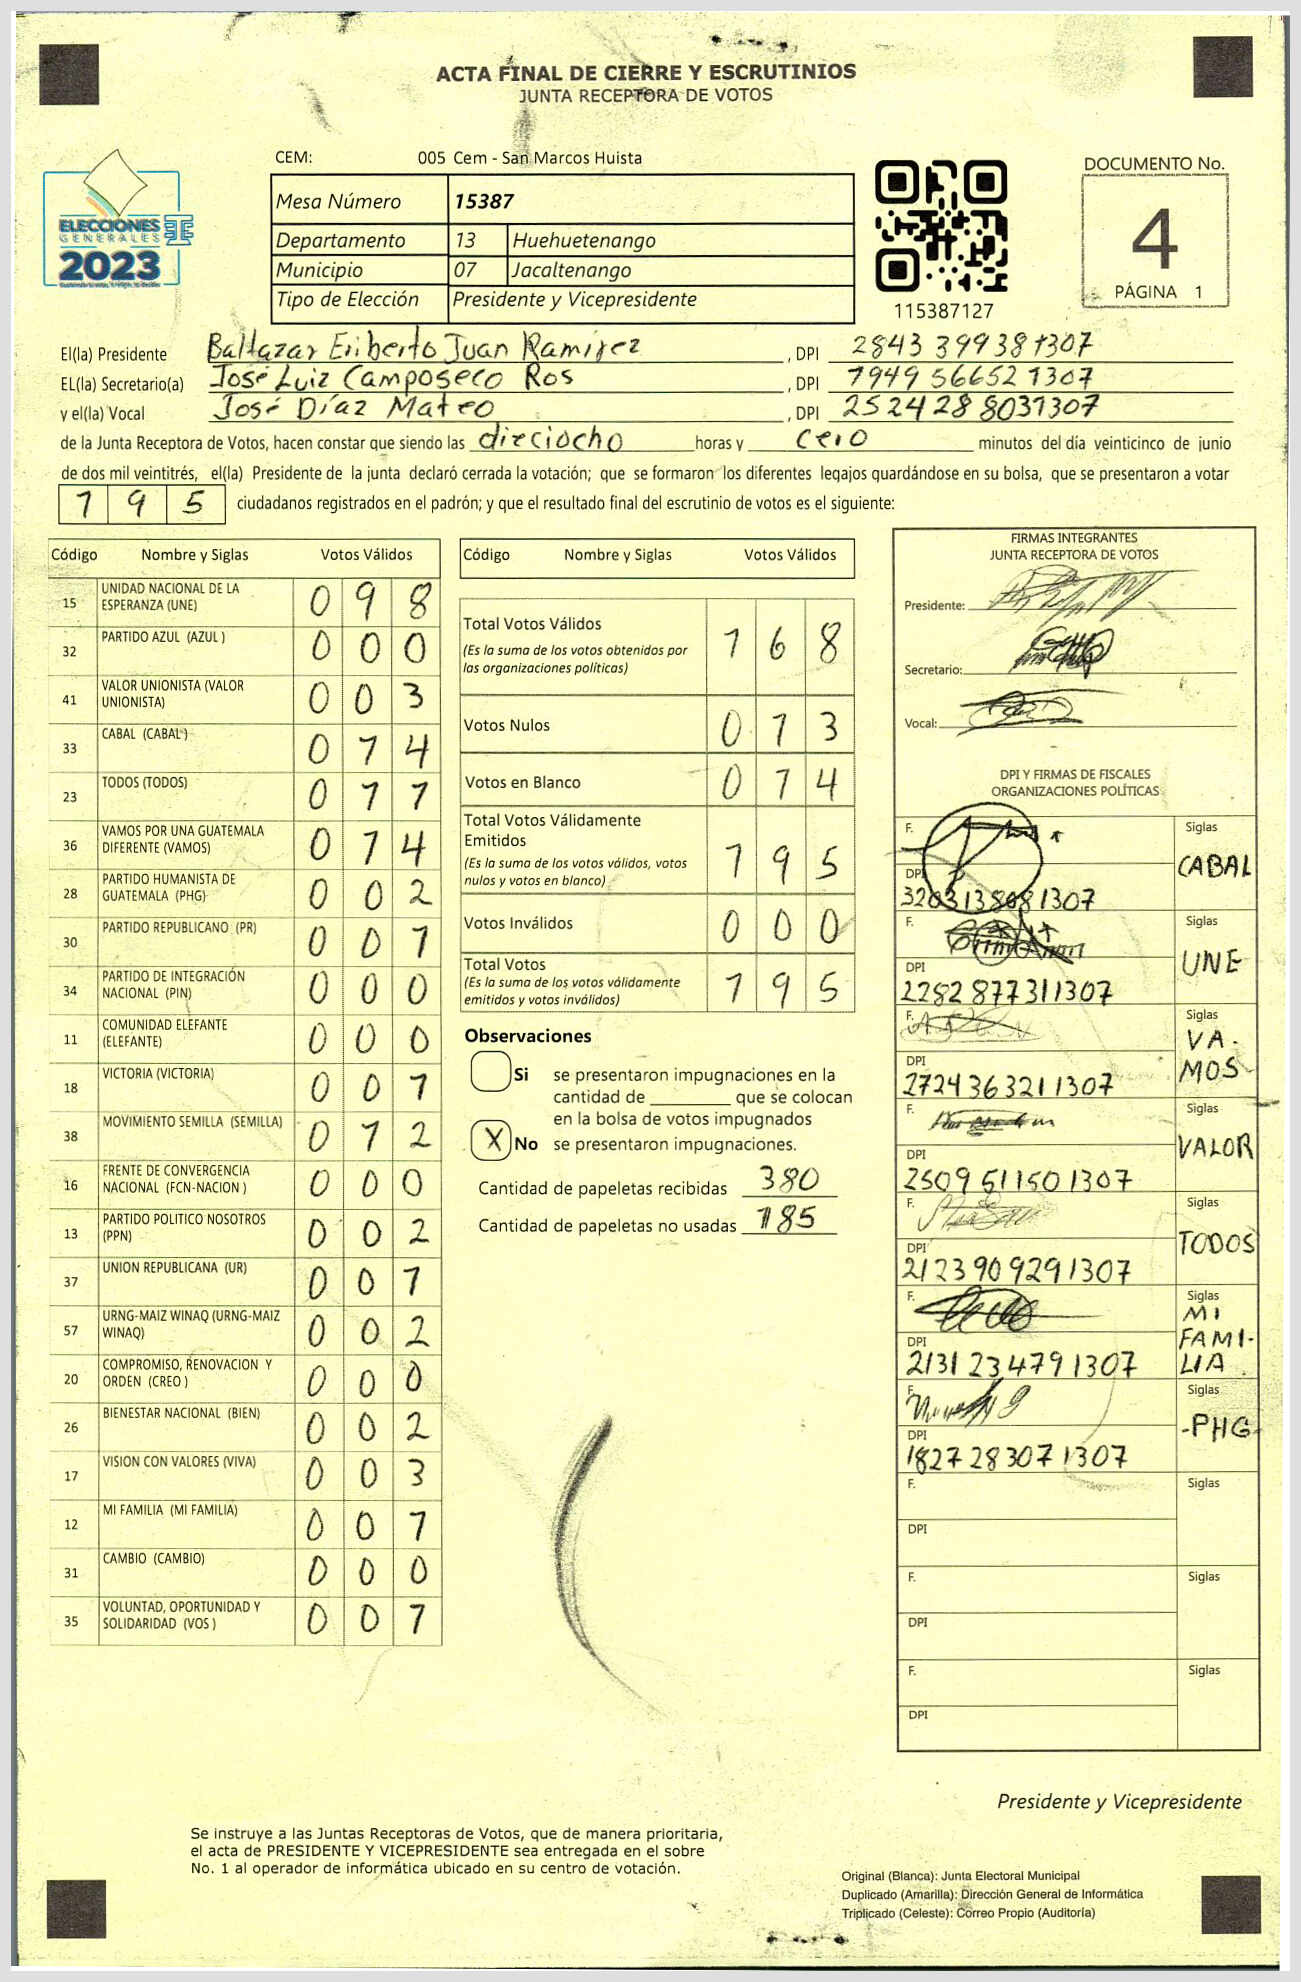 ACTA FINAL DE CIERRE Y ESCRUTINIOS
JUNTA RECEPTORA DE VOTOS
CEM: 005 Cem - San Marcos Huista
ELECCIONES
GENERALES
2023
Mesa Número 15387
Departamento 13 Huehuetenango
Municipio 07 Jacaltenango
Tipo de Elección Presidente y Vicepresidente
115387127
DOCUMENTO No.
4
PÁGINA 1
El(la) Presidente Baltazar Eriberto Juan Ramírez , DPI 2843 39938 1307
EL(la) Secretario(a) José Luiz Camposeco Ros , DPI 1949 56652 1307
y el(la) Vocal José Díaz Mateo , DPI 2524 28803 1307
de la Junta Receptora de Votos, hacen constar que siendo las dieciocho horas y cero minutos del día veinticinco de junio
de dos mil veintitrés, el(la) Presidente de la junta declaró cerrada la votación; que se formaron los diferentes legajos quardándose en su bolsa, que se presentaron a votar
1 9 5 ciudadanos registrados en el padrón; y que el resultado final del escrutinio de votos es el siguiente:
Código Nombre y Siglas Votos Válidos
15 UNIDAD NACIONAL DE LA ESPERANZA (UNE) 0 9 8
32 PARTIDO AZUL (AZUL ) 0 0 0
41 VALOR UNIONISTA (VALOR UNIONISTA) 0 0 3
33 CABAL (CABAL ) 0 1 4
23 TODOS (TODOS) 0 1 1
36 VAMOS POR UNA GUATEMALA DIFERENTE (VAMOS) 0 1 4
28 PARTIDO HUMANISTA DE GUATEMALA (PHG) 0 0 2
30 PARTIDO REPUBLICANO (PR) 0 0 1
34 PARTIDO DE INTEGRACIÓN NACIONAL (PIN) 0 0 0
11 COMUNIDAD ELEFANTE (ELEFANTE) 0 0 0
18 VICTORIA (VICTORIA) 0 0 1
38 MOVIMIENTO SEMILLA (SEMILLA) 0 1 2
16 FRENTE DE CONVERGENCIA NACIONAL (FCN-NACION ) 0 0 0
13 PARTIDO POLITICO NOSOTROS (PPN) 0 0 2
37 UNION REPUBLICANA (UR) 0 0 1
57 URNG-MAIZ WINAQ (URNG-MAIZ WINAQ) 0 0 2
20 COMPROMISO, RENOVACION Y ORDEN (CREO ) 0 0 0
26 BIENESTAR NACIONAL (BIEN) 0 0 2
17 VISION CON VALORES (VIVA) 0 0 3
12 MI FAMILIA (MI FAMILIA) 0 0 1
31 CAMBIO (CAMBIO) 0 0 0
35 VOLUNTAD, OPORTUNIDAD Y SOLIDARIDAD (VOS ) 0 0 1
Código Nombre y Siglas Votos Válidos
Total Votos Válidos 1 6 8
(Es la suma de los votos obtenidos por
las organizaciones políticas)
Votos Nulos 0 1 3
Votos en Blanco 0 1 4
Total Votos Válidamente
Emitidos 1 9 5
(Es la suma de los votos válidos, votos
nulos y votos en blanco)
Votos Inválidos 0 0 0
Total Votos 1 9 5
(Es la suma de los votos válidamente
emitidos y votos inválidos)
Observaciones
Si se presentaron impugnaciones en la
cantidad de ________ que se colocan
en la bolsa de votos impugnados
X No se presentaron impugnaciones.
Cantidad de papeletas recibidas 380
Cantidad de papeletas no usadas 185
FIRMAS INTEGRANTES
JUNTA RECEPTORA DE VOTOS
Presidente:
Secretario:
Vocal:
DPI Y FIRMAS DE FISCALES
ORGANIZACIONES POLÍTICAS
F. Siglas
CABAL
DPI
3203138081307
F. Siglas
UNE
DPI
2282 87731 1307
F. Siglas
VA-
MOS
DPI
2724 36321 1307
F. Siglas
VALOR
DPI
2509 51150 1307
F. Siglas
TODOS
DPI
2123 90929 1307
F. Siglas
MI
FAMI-
LIA
DPI
2131 23479 1307
F. Siglas
-PHG-
DPI
1827 28307 1307
F. Siglas
DPI
F. Siglas
DPI
F. Siglas
DPI
Presidente y Vicepresidente
Se instruye a las Juntas Receptoras de Votos, que de manera prioritaria,
el acta de PRESIDENTE Y VICEPRESIDENTE sea entregada en el sobre
No. 1 al operador de informática ubicado en su centro de votación.
Original (Blanca): Junta Electoral Municipal
Duplicado (Amarilla): Dirección General de Informática
Triplicado (Celeste): Correo Propio (Auditoría)